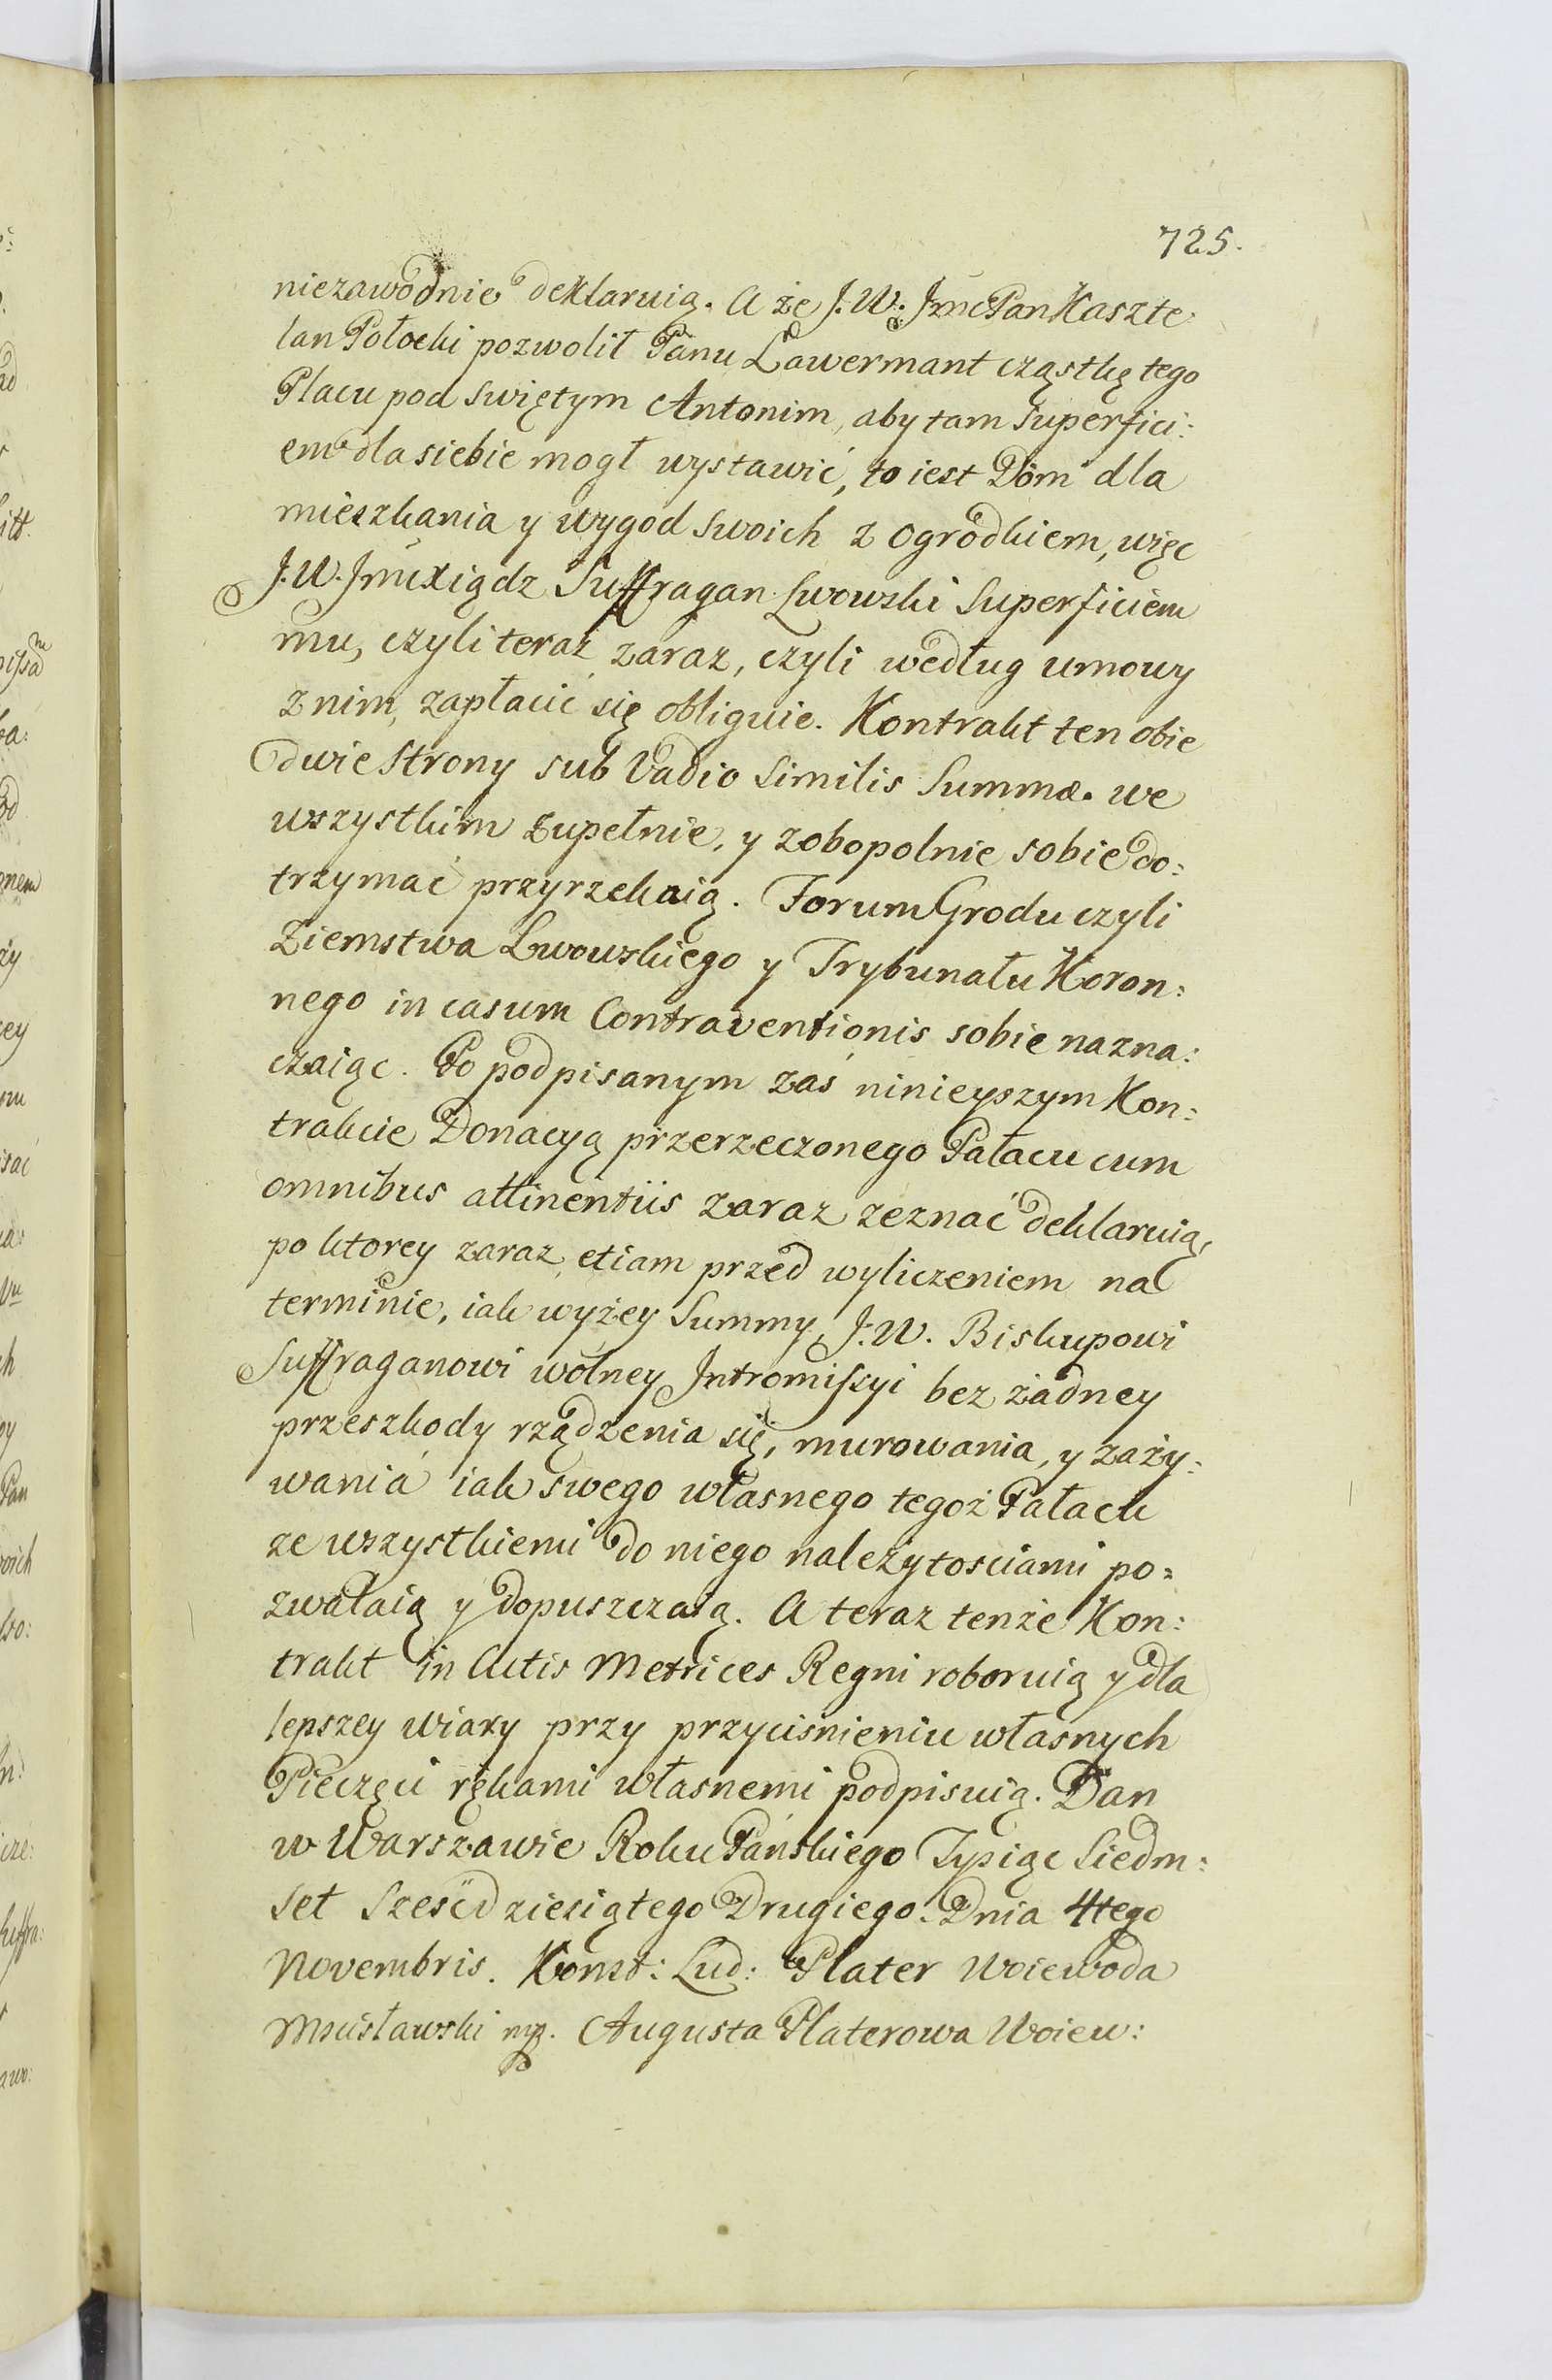 725.
niezawodnie deklaruią. A że J.W. Jmc Pan Kaszte:
lan Połocki pozwolił Panu Lawermant cząstkę tego
Placu pod Swiętym Antonim, aby tam Superfici:
em dla siebie mogł wystawić, to iest Dóm dla
mieszkania y wygod Swoich z Ogrodkiem, więc
J.W. Jmćxiądz Suffragan Lwowski Superficiem
mu, czyli teraz zaraz, czyli według umowy
z nim, zapłacić się obliguie. Kontrakt ten obie
dwie Strony sub Vadio Similis Summæ. we
wszystkim zupełnie, y zobopolnie sobie do:
trzymać przyrzekaią. Forum Grodu czyli
Ziemstwa Lwowskiego y Trybunału Koron:
nego in casum Contraventionis sobie nazna:
czaiąc. Po podpisanym zaś ninieyszym Kon:
trakcie Donacyą przerzeczonego Pałacu cum
omnibus attinentiis zaraz zeznać deklaruią,
po ktorey zaraz etiam przed wyliczeniem na
terminie, iak wyżey Summy, J.W. Biskupowi
Suffraganowi wólney Intromissyi bez żadney
przeszkody rządzenia się, murowania, y zaży:
wania iak swego własnego tegoż Pałacu
ze wszystkiemi do niego należytosciami po:
zwałaią y dopuszczaią. A teraz tenże Kon:
trakt in Actis Metrices Regni roboruią y dla
lepszey wiary przy przyciśnieniu własnych
Pieczęci rękami własnemi podpisuią. Dan
w Warszawie Roku Pańskiego Tysiąc Siedm:
set Sześćdziesiątego Drugiego. Dnia 4tego
Novembris. Konst: Lud: Plater Woiewoda
Mscisławski mp. Augusta Platerowa Woiew: